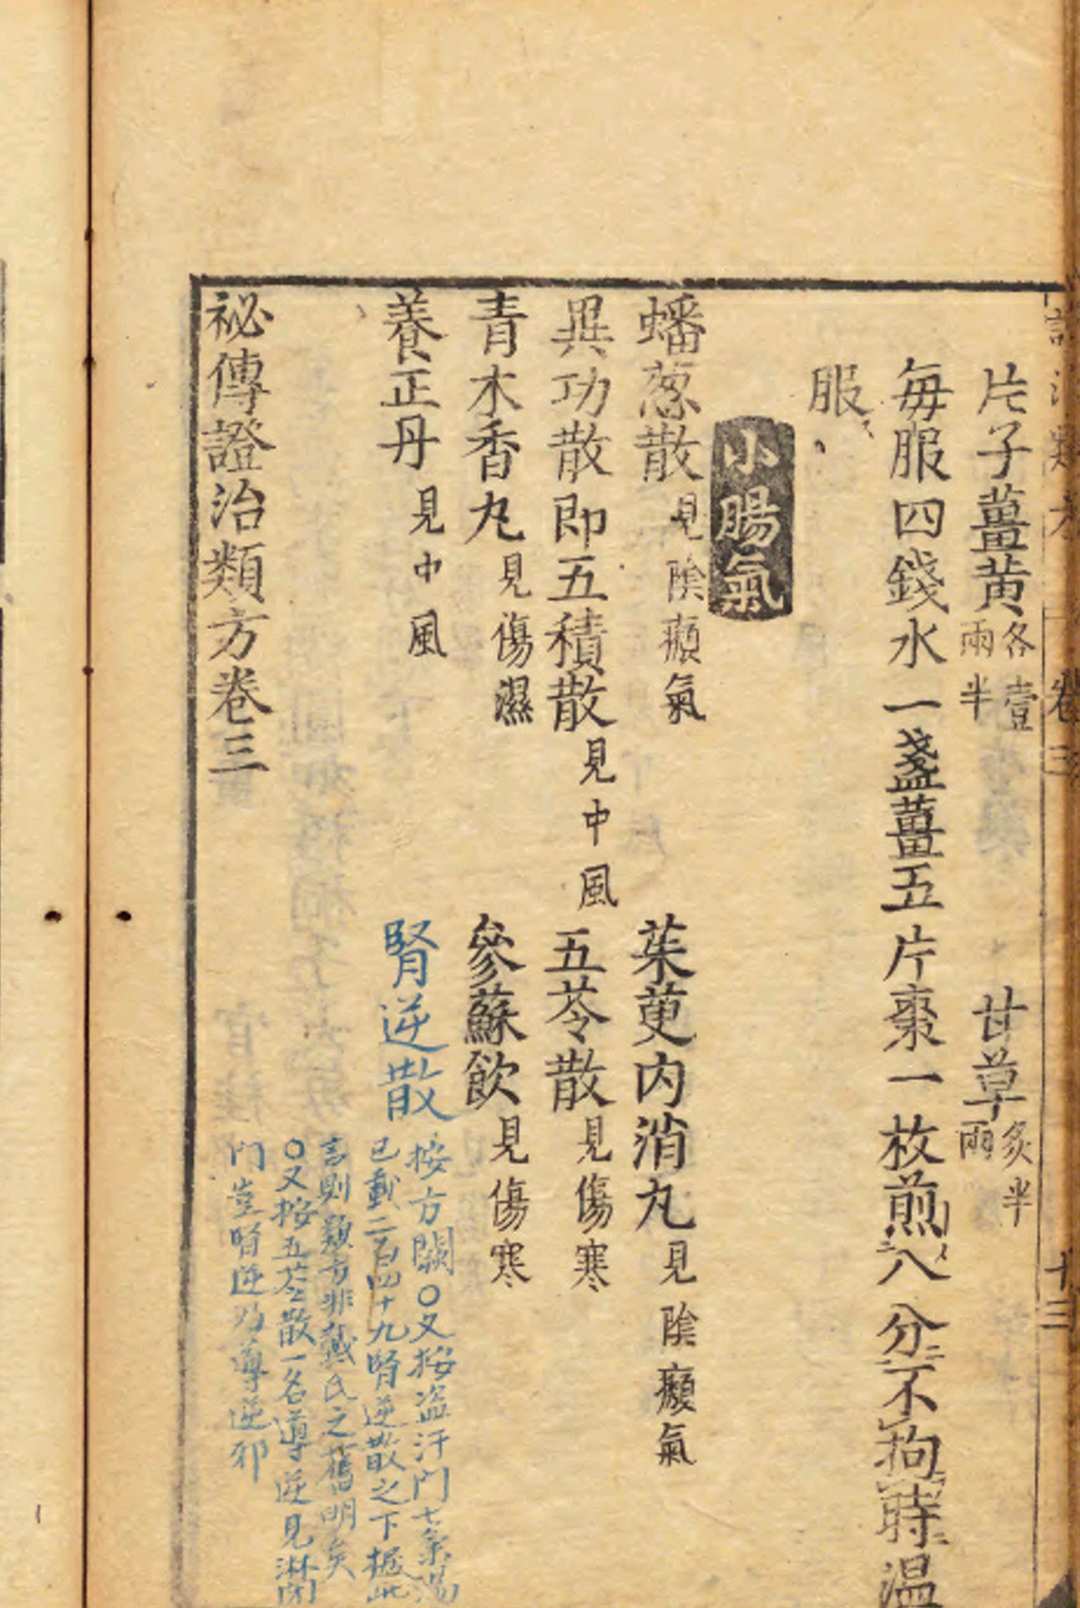 片子薑黄各壹兩半 甘草炙半兩
每服四錢水一盞薑五片棗一枚煎八分不拘時温
服
小腸氣
蟠葱散見陰㿗氣 茱萸内消丸見陰㿗氣
異功散即五積散見中風 五苓散見傷寒
青木香丸見傷濕 參蘇飲見傷寒
養正丹見中風 腎逆散
按方闕○又按盗汗門七氣湯
已載二百四十九腎逆散之下據此
言則類方非戴氏之舊明矣
○又按五苓散一名導逆見淋閉
門豈腎逆乃導逆邪
祕傳證治類方卷三